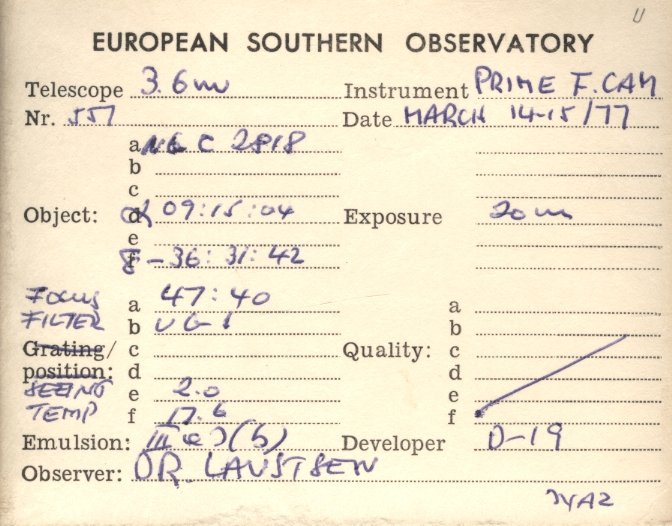 U
EUROPEAN SOUTHERN OBSERVATORY
Telescope 3.6m Instrument PRIME F. CAM
Nr. 557 Date MARCH 14-15/77
a NGC 2818
b
c
Object: d α 09:15:04 Exposure 20m
e
f δ -36:31:42
FOCUS a 47:40 a
FILTER b UG1 b
Grating/ c Quality: c
position: d d
SEEING e 2.0 e
TEMP f 17.6 f
Emulsion: III a J (b) Developer D-19
Observer: DR. LAUSTSEN